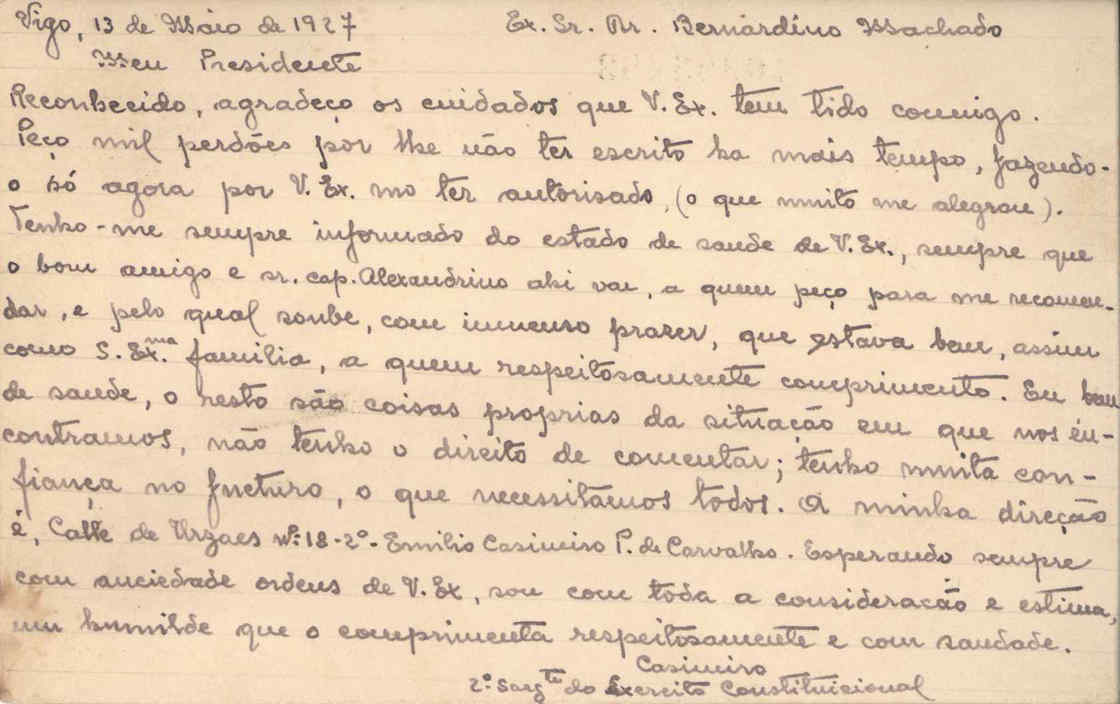 Vigo, 13 de Maio de 1927 Ex. Sr. Dr. Bernardino Machado
Meu Presidente
Reconhecido, agradeço os cuidados que V. Ex. tem tido comigo.
Peço mil perdões por lhe não ter escrito ha mais tempo, fazendo-
o só agora por V. Ex. mo ter autorisado, (o que muito me alegrou).
Tenho-me sempre informado do estado de saude de V. Ex., sempre que
o bom amigo e sr. cap. Alexandrino ahi vai, a quem peço para me recomen-
dar, e pelo qual soube, com immenso prazer, que estava bem, assim
como S. Ex.ma familia, a quem respeitosamente comprimento. Eu bem
de saude, o resto são coisas proprias da situação em que nos én-
contramos, não tenho o direito de comentar; tenho muita con-
fiança no fucturo, o que necessitamos todos. A minha direção
é, Calle de Urzaes nº 18-2º- Emilio Casimiro P. de Carvalho. Esperando sempre
com anciedade ordens de V. Ex, sou com toda a consideracão e estima,
um humilde que o comprimenta respeitosamente e com saudade.
Casimiro
2º Sargte do Exercito Constituicional